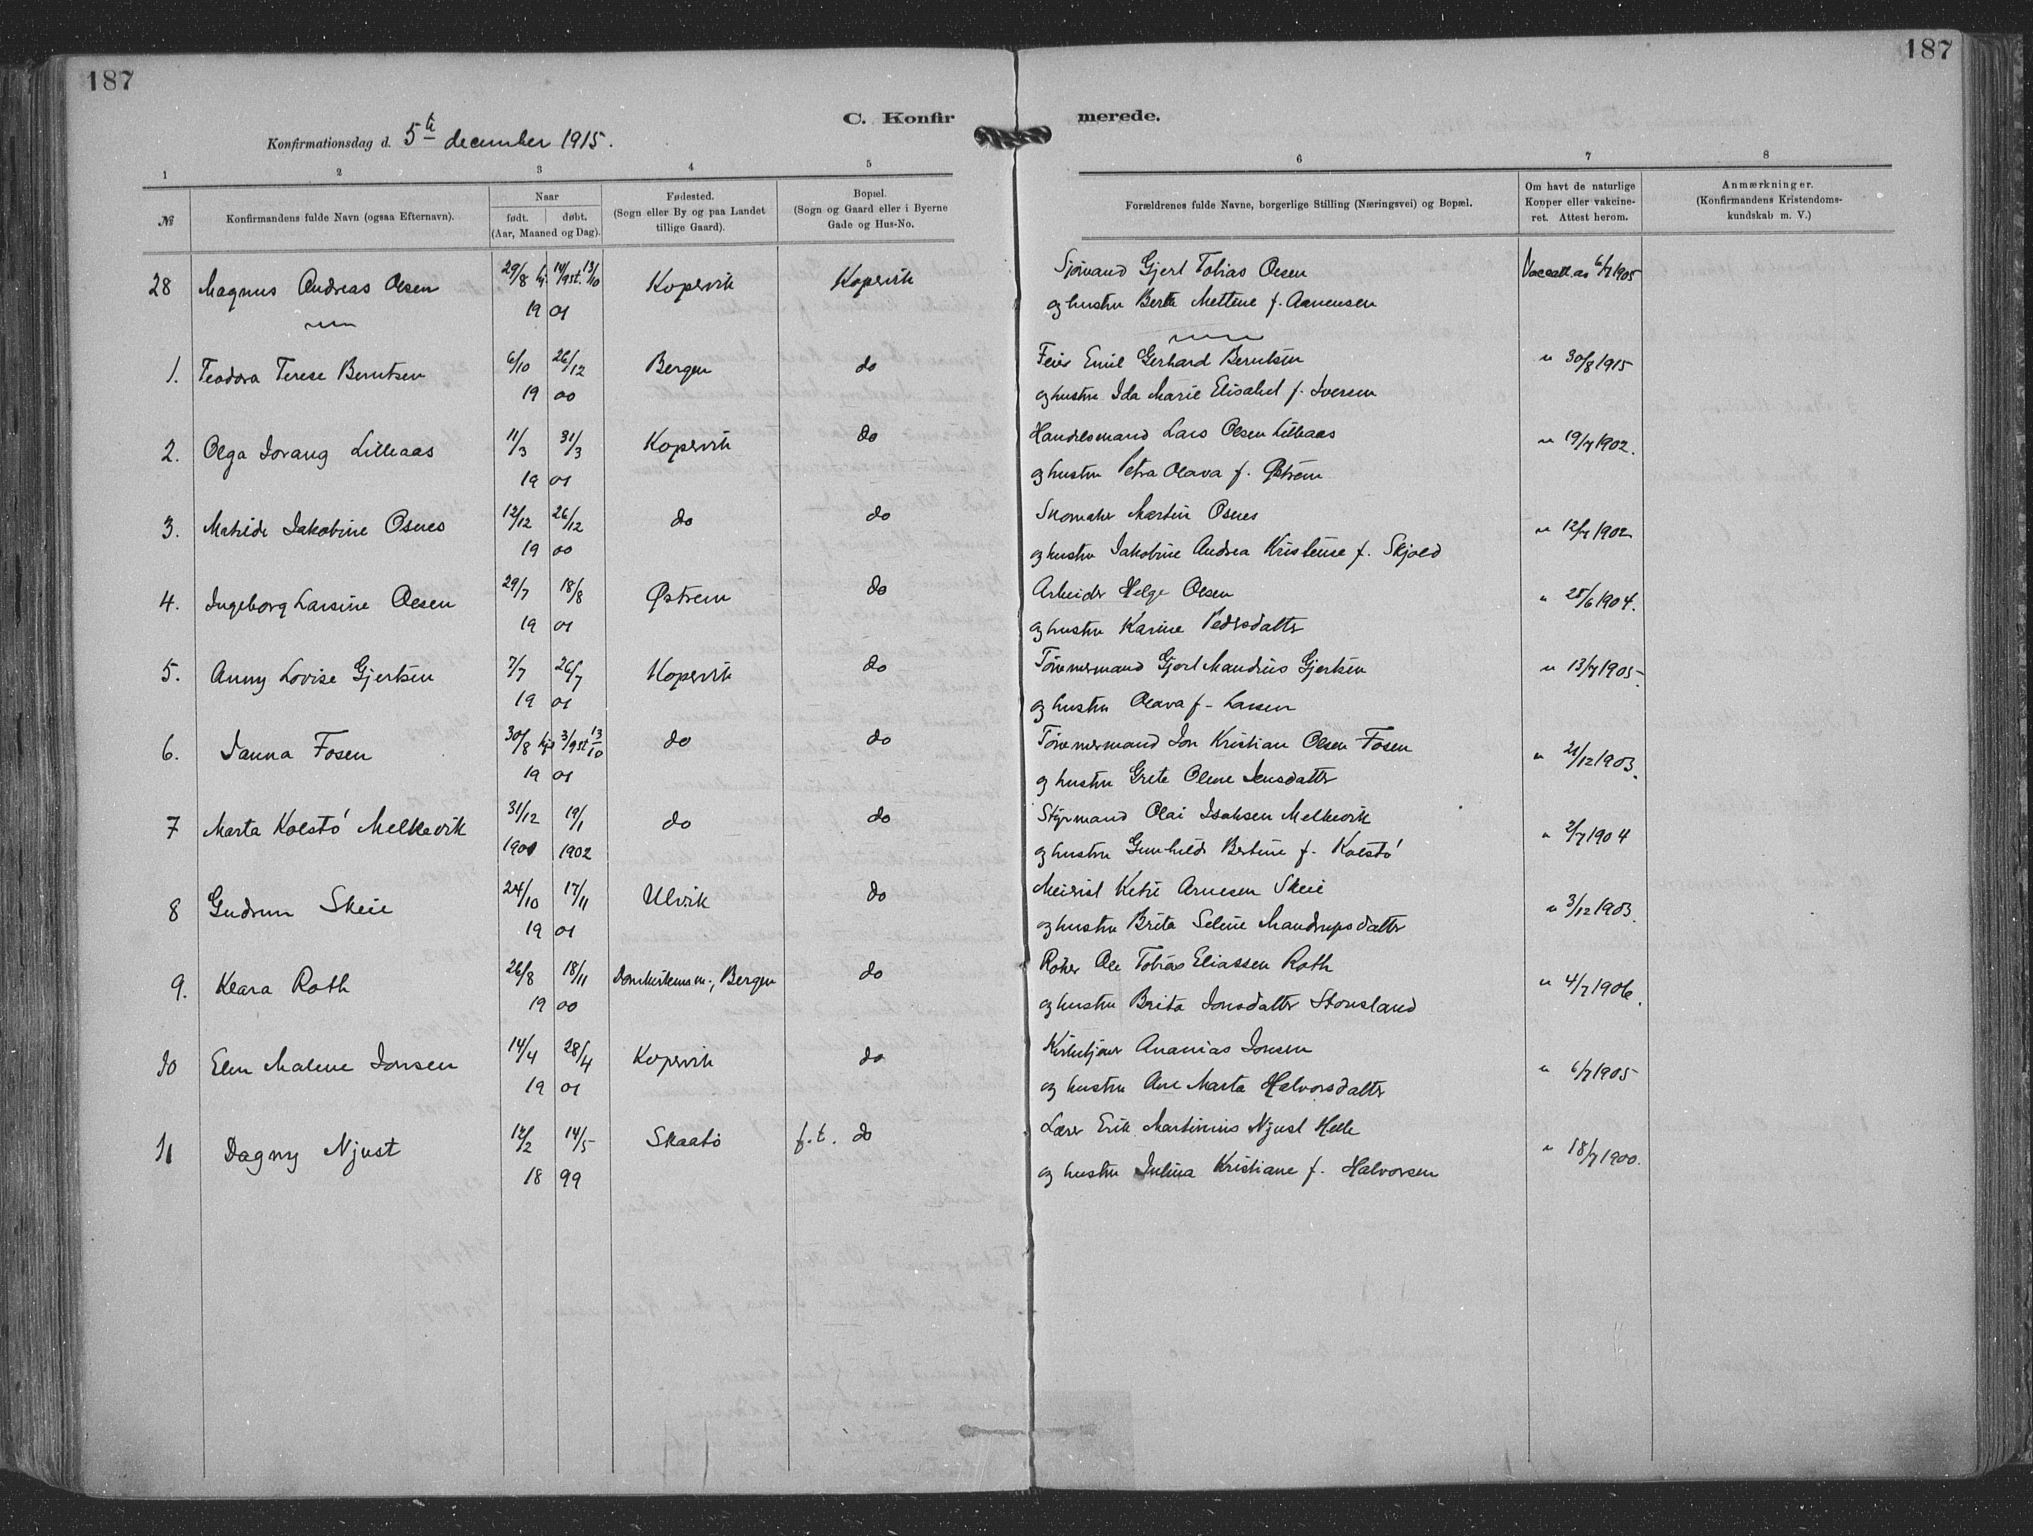 187
187
C. Konfirmerede.
Konfirmationsdag d. 5te december 1915.
1 2 3 4 5 6 7 8
№ Konfirmandens fulde Navn (ogsaa Efternavn). Naar født. døbt. (Aar, Maaned og Dag). Fødested. (Sogn eller By og paa Landet tillige Gaard). Bopæl. (Sogn og Gaard eller i Byerne Gade og Hus-No. Forældrenes fulde Navne, borgerlige Stilling (Næringsvei) og Bopæl. Om havt de naturlige Kopper eller vakcineret. Attest herom. Anmærkninger. (Konfirmandens Kristendomskundskab m. V.)
28 Magnus Andreas Olsen 29/8 hj. 14/9 st. 13/10 Kopervik Kopervik Sjömand Gjert Tobias Olsen 6/7 1905
19 01 og hustru Berte Mettine f. Aanensen
1. Teodora Terese Berntsen 6/10 26/12 Bergen do Feier Emil Gerhard Berntsen " 30/8 1915
19 00 og hustru Ida Marie Elisabet f. Iversen
2. Olga Jorang Lillaas 11/3 31/3 Kopervik do Handelsmand Lars Olsen Lillaas " 19/7 1902.
19 01 og hustru Petra Olava f. Østrem
3. Matilde Jakobine Osnes 12/12 26/12 do do Skomaker Martin Osnes " 12/7 1902
19 00 og hustru Jakobine Andrea Kristense f. Skjold
4. Ingeborg Larsine Olsen 29/7 18/8 Østrem do Arbeider Helge Olsen " 25/6 1904.
19 01 og hustru Karine Pedersdatter
5. Anny Lovise Gjertsen 7/7 26/7 Kopervik do Tömmermand Gjert Mandius Gjertsen " 13/7 1905.
19 01 og hustru Olava f. Larsen
6. Janna Fosen 30/8 hj. 3/9 st. 13/10 do do Tömmermand Jon Kristian Olsen Fosen " 21/12 1903.
19 01 og hustru Grete Oline Jensdatter
7 Marta Kolstö Melkevik 31/12 19/1 do do Styrmand Olai Isaksen Melkevik " 2/7 1904
1901 1902 og hustru Gunhilde Bertine f. Kolstö
8 Gudrun Skeie 24/10 17/11 Ulvik do Meierist Ketil Arnesen Skeie " 3/12 1903.
19 01 og hustru Brita Seline Mandrupsdatter
9. Klara Roth 26/8 18/11 Domkirkens m., Bergen do Röker Ole Tobias Eliassen Roth " 4/7 1906.
19 00 og hustru Brita Jonsdatter Stonsland
10 Elen Malene Jonsen 14/4 28/4 Kopervik do Kirketjener Ananias Jonsen " 6/7 1905
19 01 og hustru Ane Marta Halvorsdatter
11 Dagny Njust 12/2 14/5 Skaatö f. t. do Lærer Erik Martinius Njust Helle " 18/7 1900.
18 99 og hustru Julina Kristiane f. Halvorsen